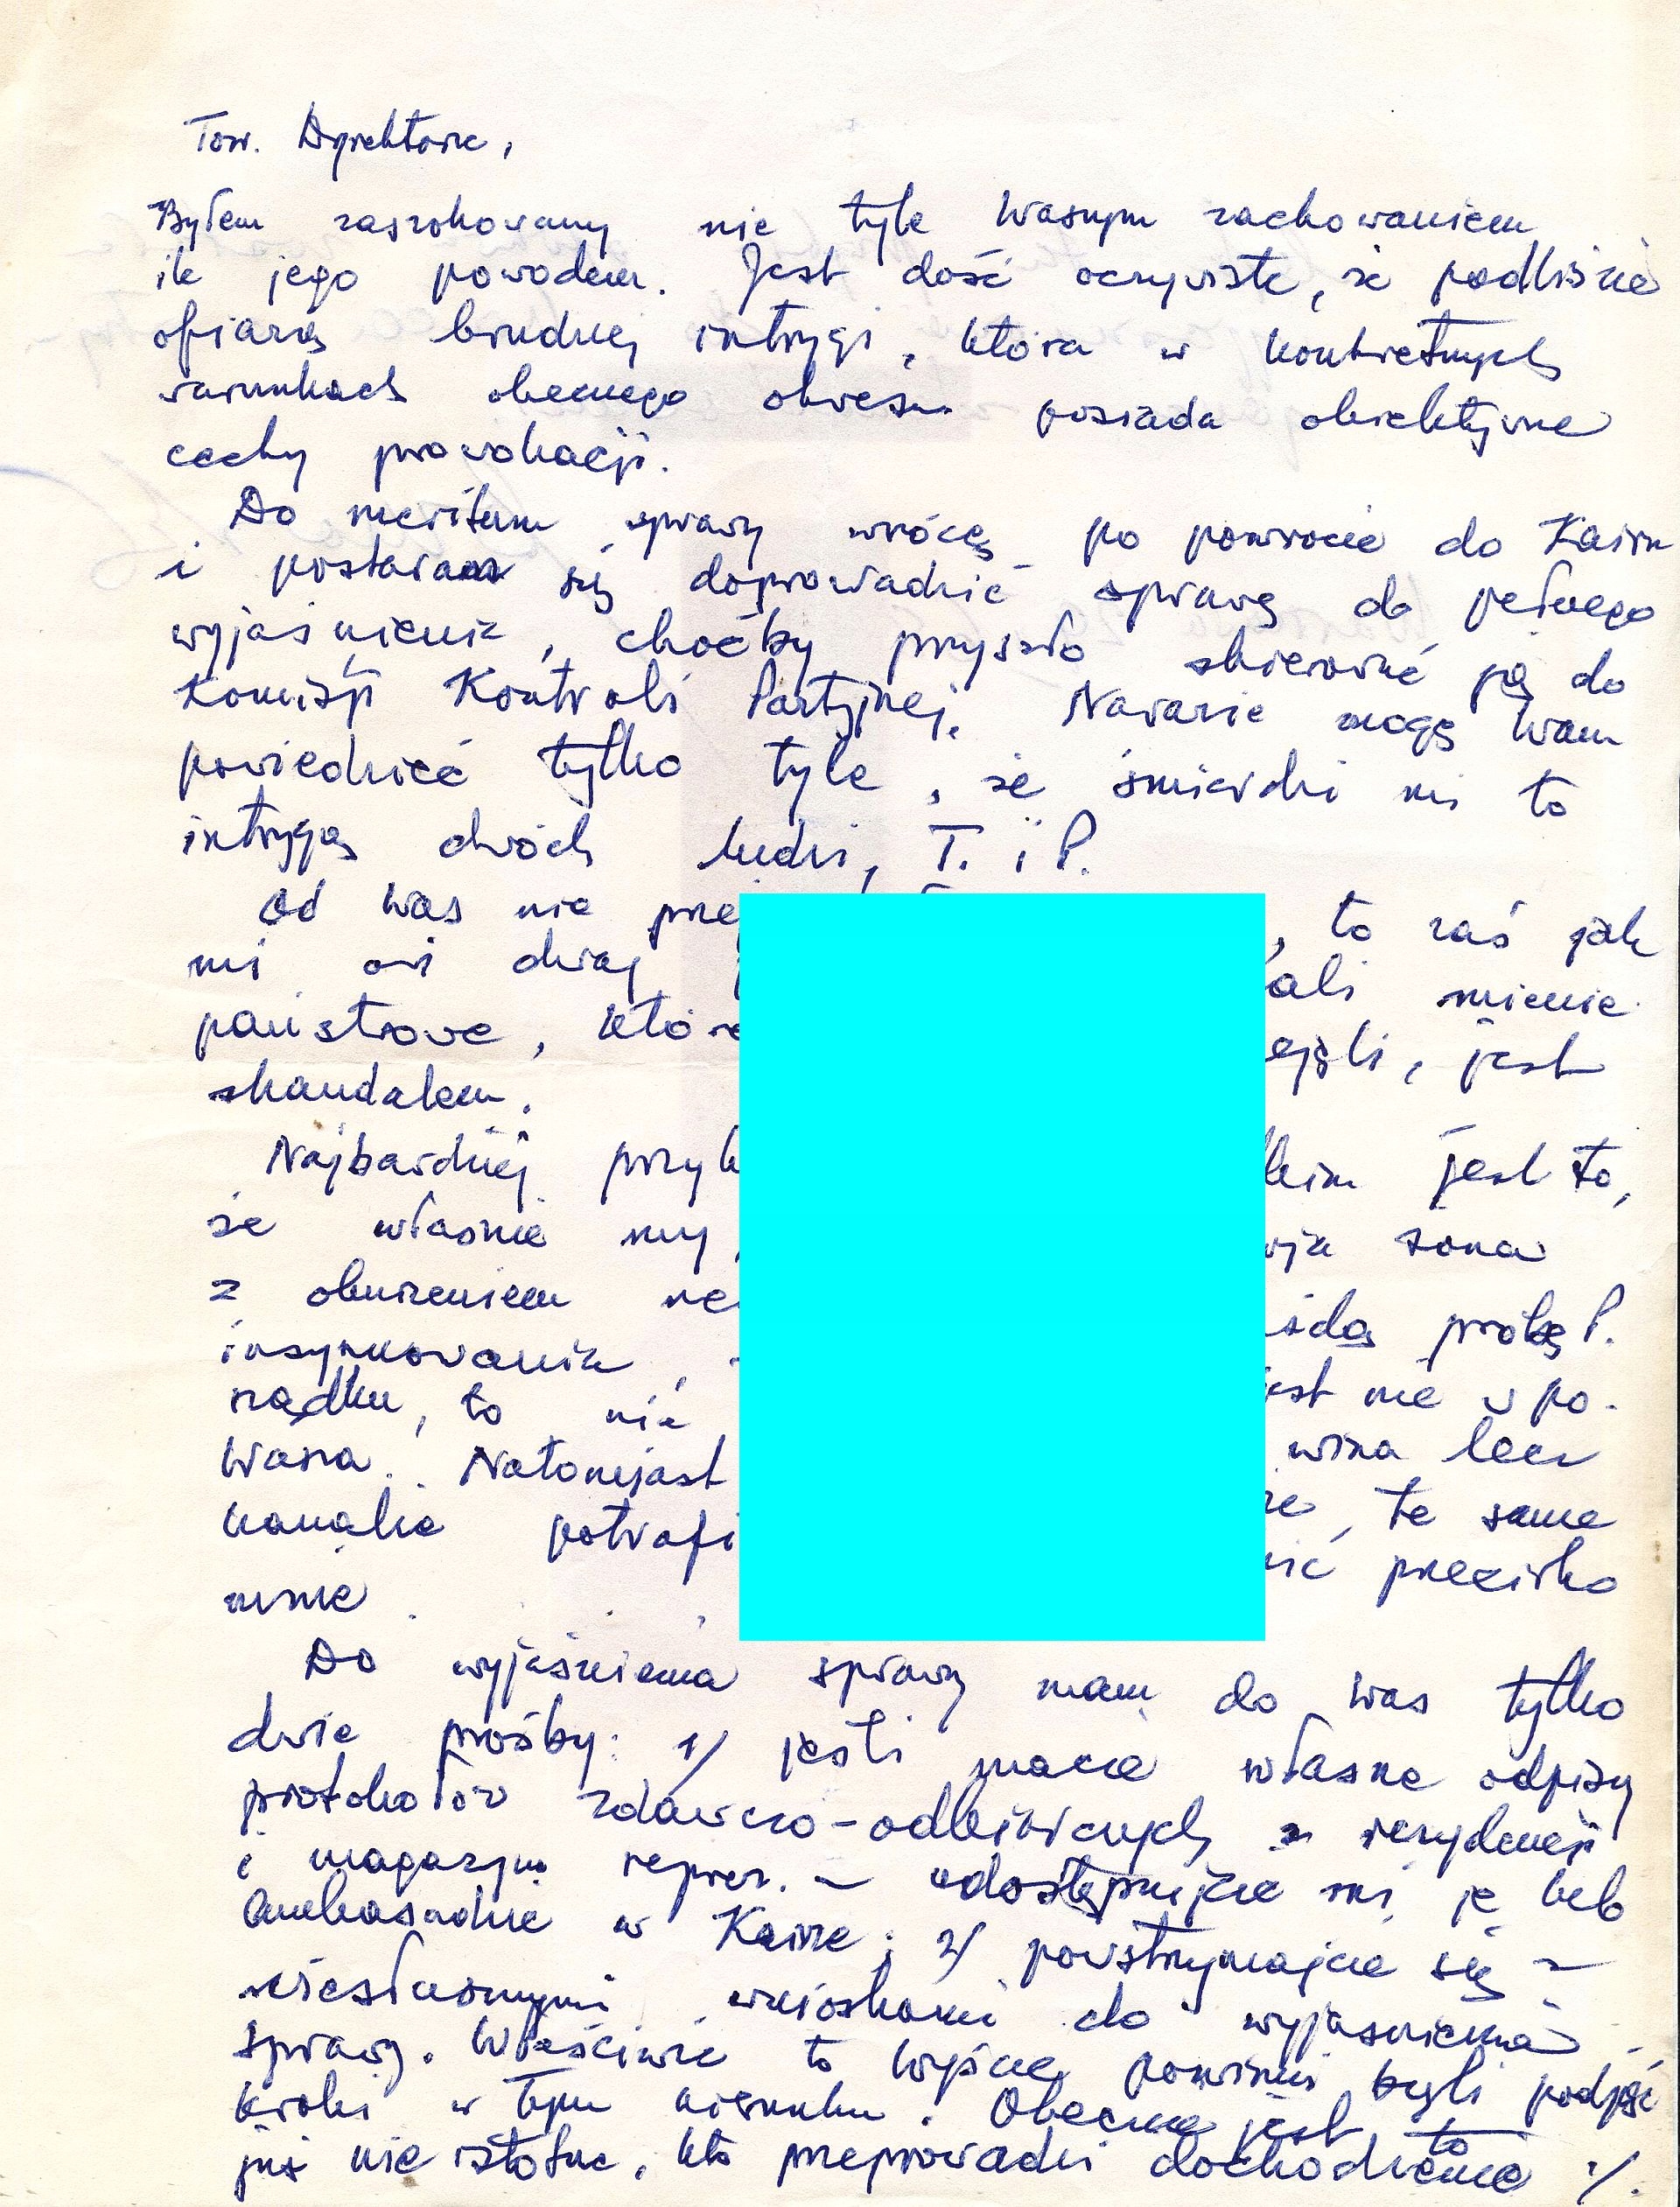 Tow. Dyrektorze,
Byłem zaszokowany nie tyle Waszym zachowaniem
ile jego powodem. Jest dość oczywiste, że padliście
ofiarą brudnej intrygi, która w konkretnych
warunkach obecnego okresu posiada obiektywne
cechy prowokacji.
Do meritum sprawy wrócę po powrocie do Kairu
i postaram się doprowadzić sprawę do pełnego
wyjaśnienia, choćby przyszło skierować ją do
Komisji Kontroli Partyjnej. Narazie mogę Wam
powiedzieć tylko tyle, że śmierdzi mi to
intrygą dwóch ludzi, T. i P.
Od Was nie , to zaś jak
mi owi dwaj mienie
państwowe, jest
skandalem.
Najbardziej jest to,
że właśnie my, żona
z oburzeniem próbę P.
insynuowania, nie w po-
rządku, to nie
Wasza. Natomiast wina lecz
kanalie te same
mnie.
Do wyjaśnienia sprawy mam do Was tylko
dwie prośby: 1/ jeśli macie własne odpisy
protokołów zdawczo-odbiorczych z rezydencji
i magazynu reprez. – udostępnijcie mi je lub
Ambasadzie w Kairze; 2/ powstrzymajcie się z
wnioskami do wyjaśnienia
sprawy. Właściwie to Wyście powinni byli podjąć
kroki w tym kierunku. Obecnie jest to
już nie istotne, kto przeprowadzi dochodzenie ./.